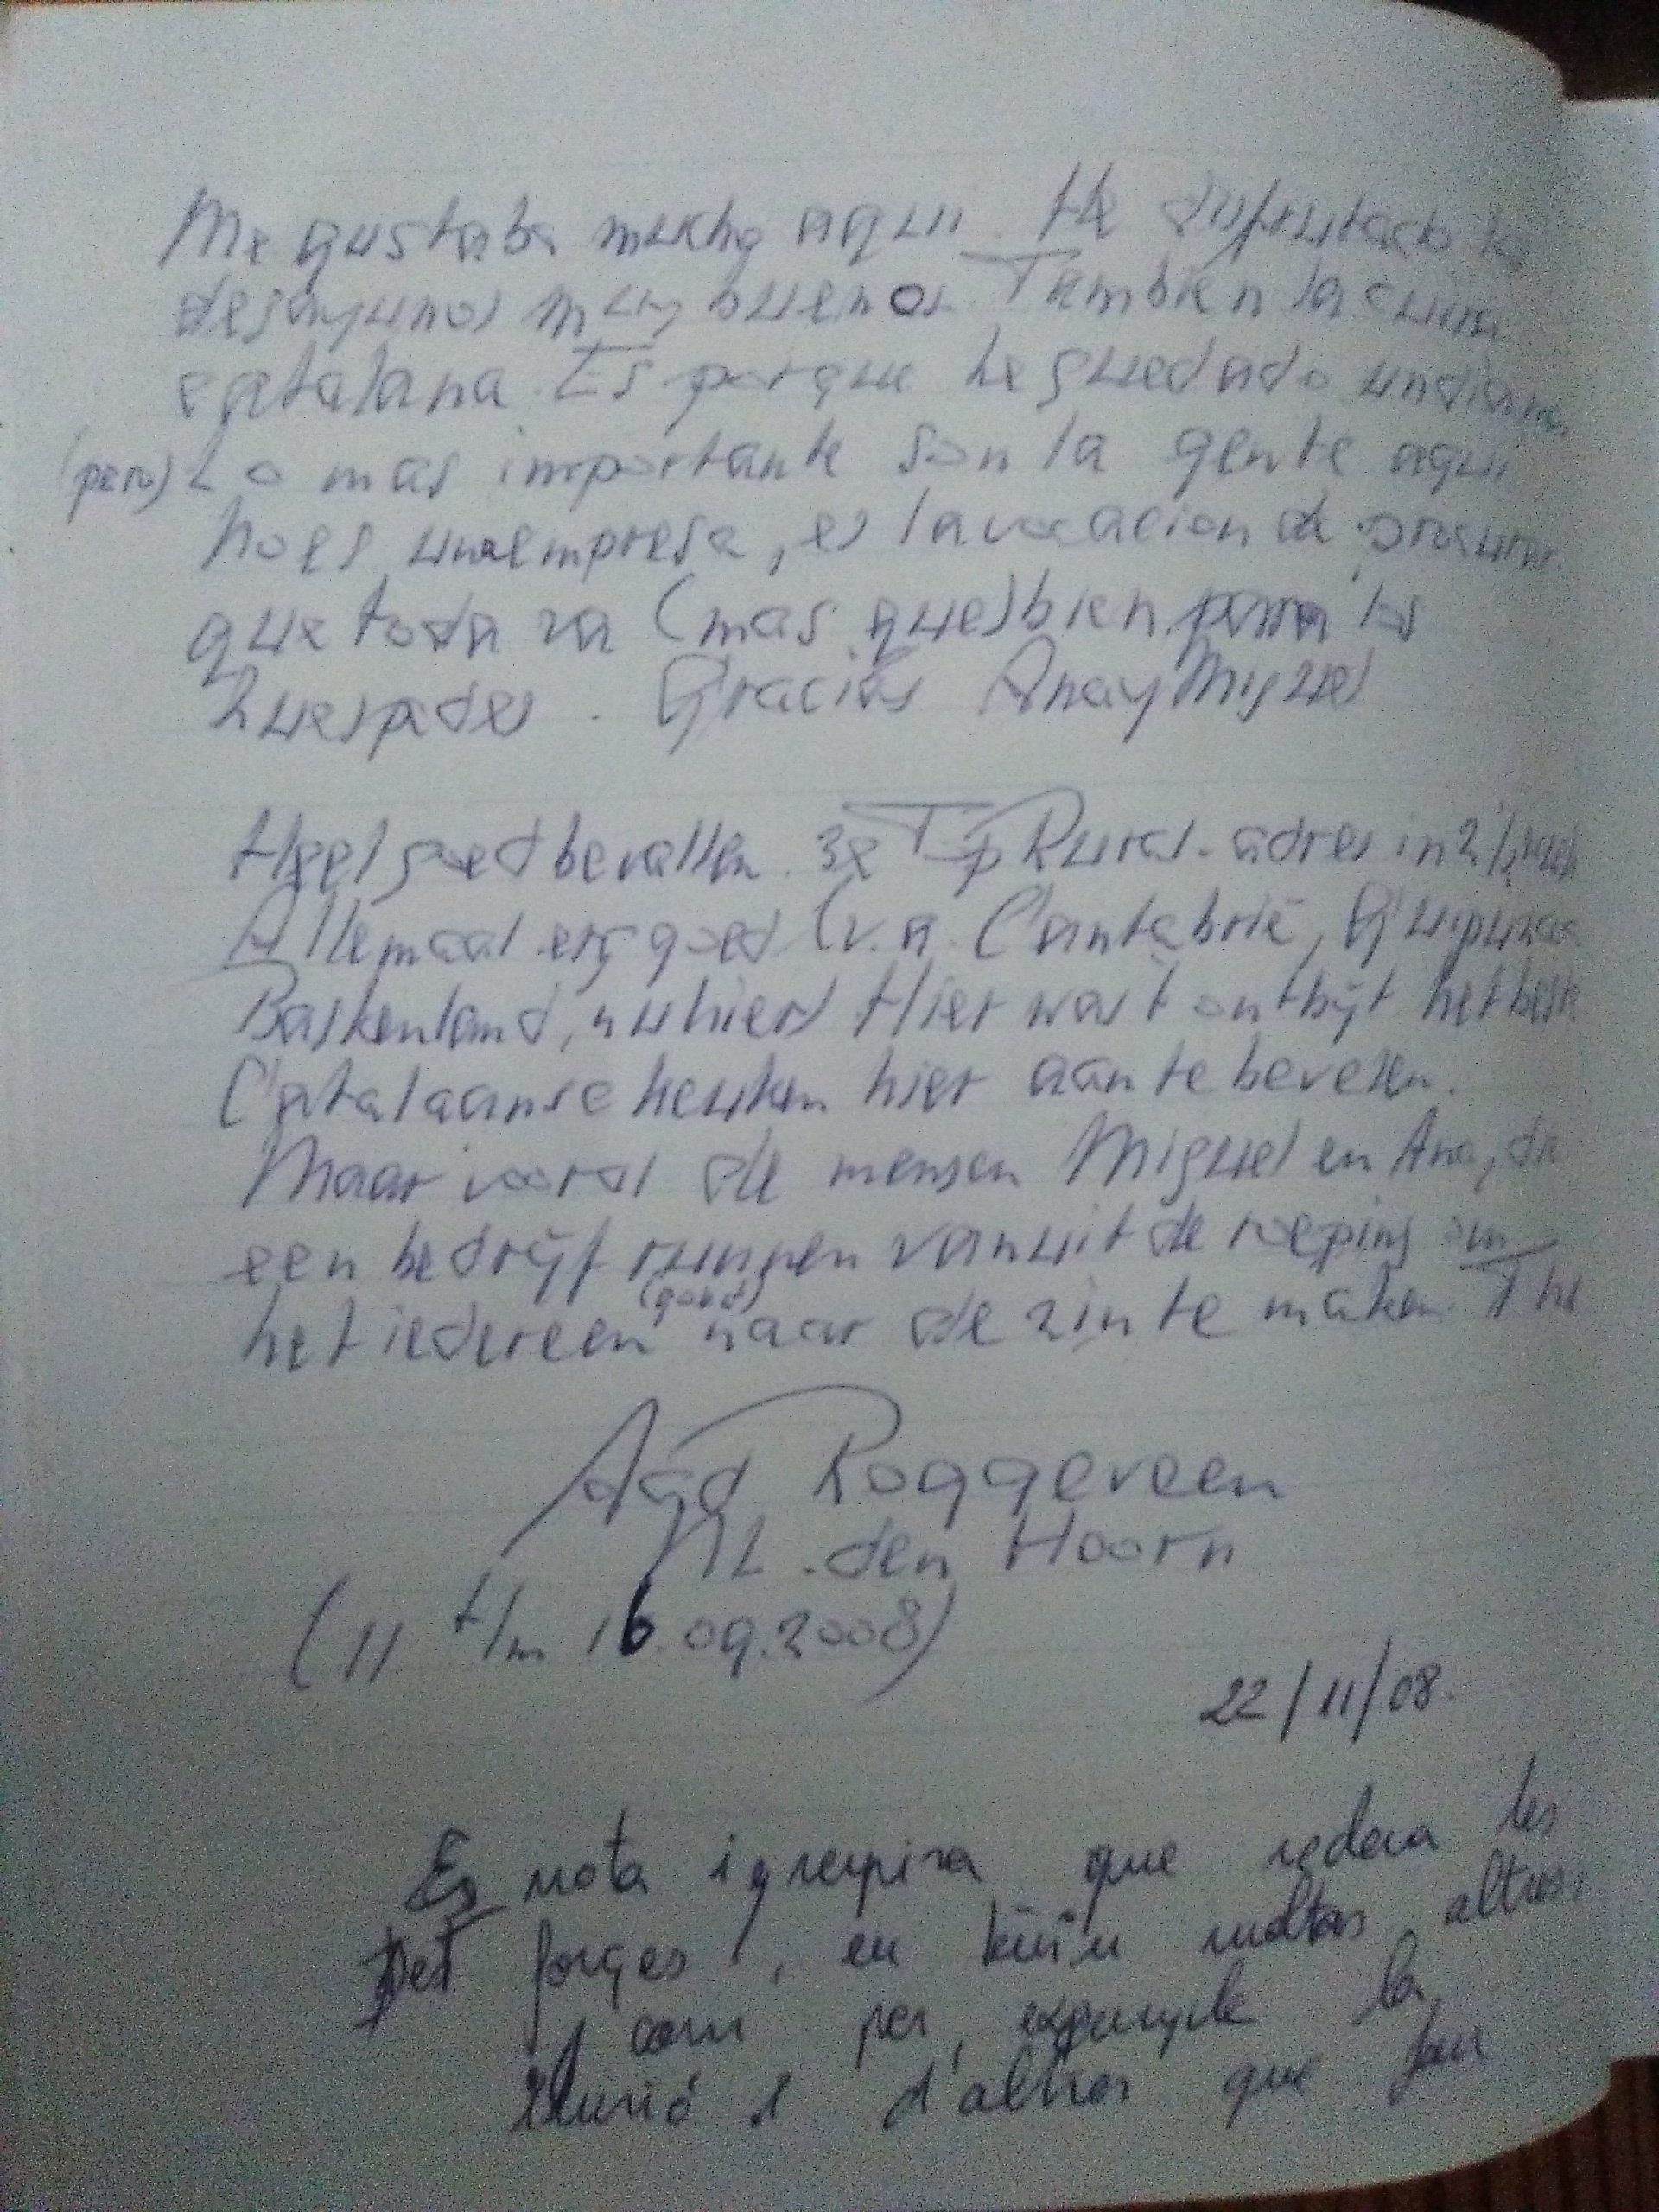 Me gustaba mucho aqui. He disfrutado los
desayunos muy buenos. Tambien la cuina
catalana. Es porque he quedado un dia mas
(pero) Lo mas importante son la gente aqui
no es una empresa, es la vocacion de procurar
que toda va (mas que) bien para los
huespedes. Gracias Ana y Miguel
Heel goed bevallen. 3e Top Rural-adres in 2½
Allemaal erg goed (v.a. Cantabrië, Guipuzcoa
Baskenland, nu hier) Hier was 't ontbijt het beste
Catalaanse keuken hier aan te bevelen.
Maar vooral de mensen Miguel en Ana, die
een bedrijf runnen vanuit de roeping om
het iedereen (goed) naar de zin te maken.
Aad Roggeveen
NL. den Hoorn
(11 t/m 16.09.2008)
22/11/08.
Es nota i que les
forçes, en moltes altres,
com per exemple la
il·lusió i d'altres que fan